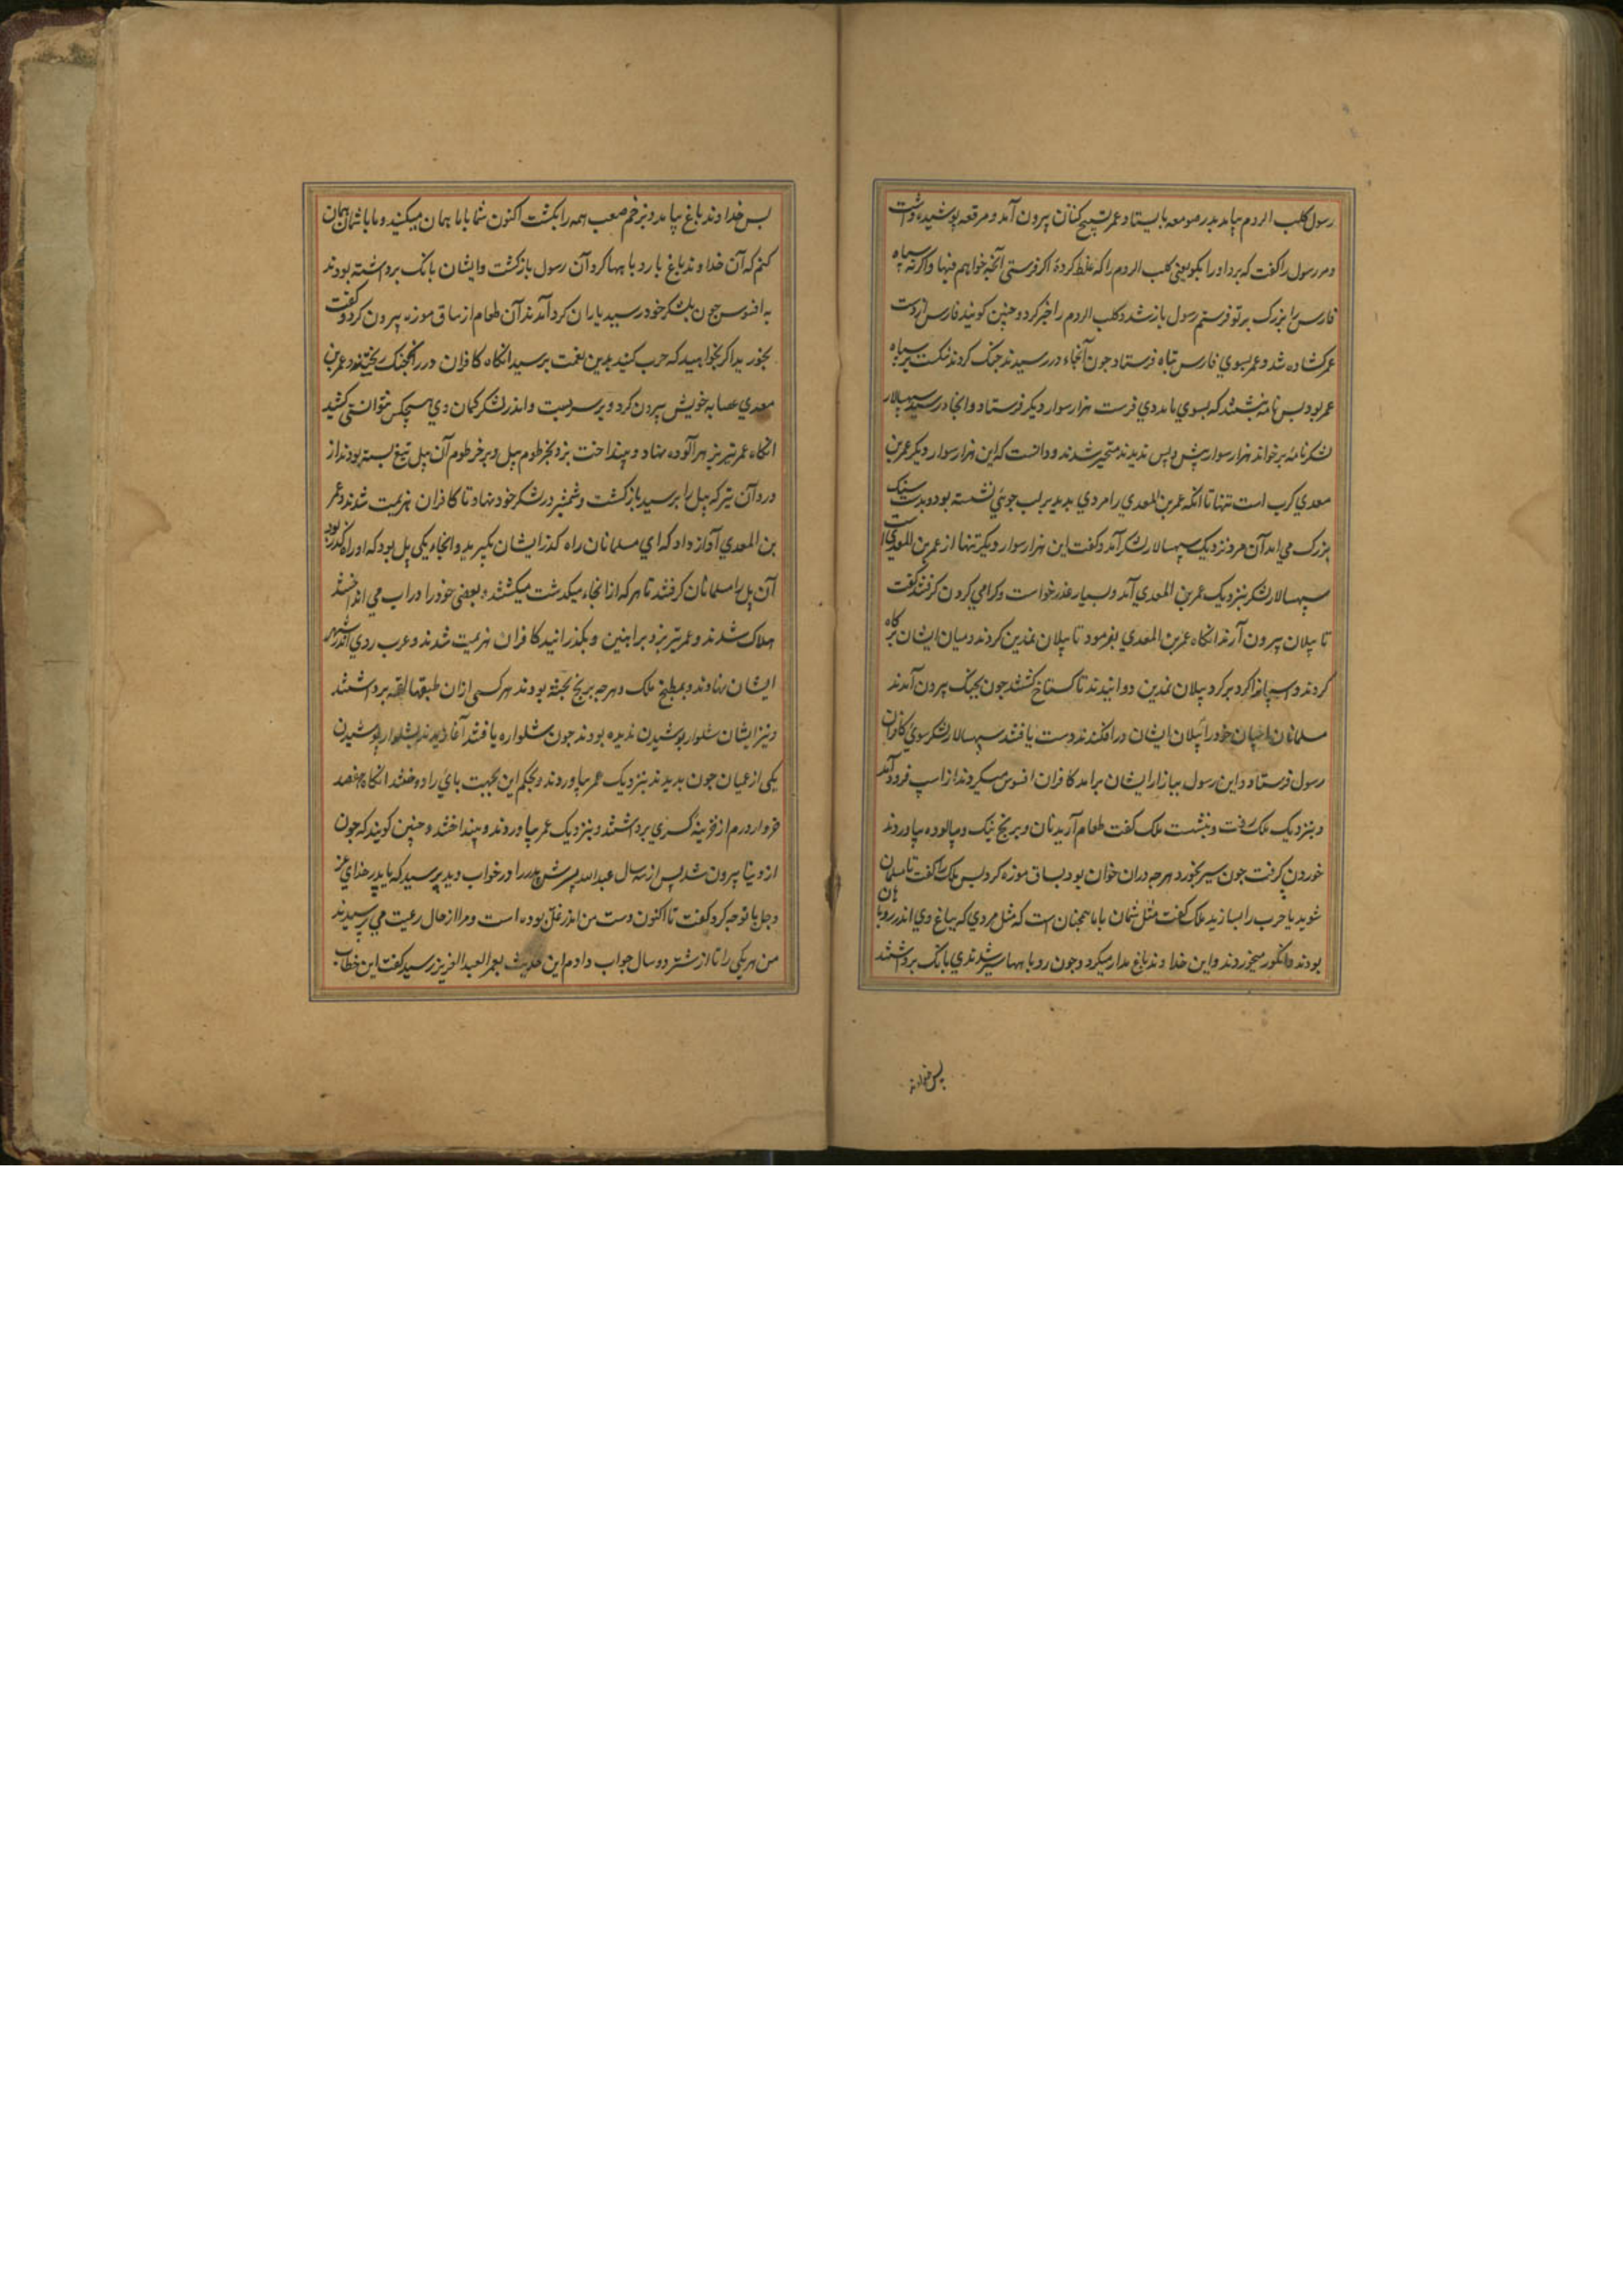 رسول کلب الروم بیامد بدر صومعه بایستاد عمر تسبیح کنان بیرون آمد و مرقعه پوشیده داشت
و مر رسول را کفت که برو او را بکو یعنی کلب الروم را که غلط کردهٔ اکر فرستی آنچه خواهم فبها و اکر نه سپاه
فارس را بزرک بر تو فرستم رسول باز شد و کلب الروم را خبر کرد و چنین کویند فارس از دست
عمر کشاده شد و عمر بسوی فارس سپاه فرستاد جون آنجاء در رسیدند جنک کردند شکست بر سپاه
عمر بود بس نامه نبشتند که بسوی ما مددی فرست هزار سوار دیکر فرستاد و انجا در رسید سپهسالار
لشکر نامه بر خواند هزار سوار پیش و پس ندیدند متحیر شدند و دانست که این هزار سوار دیکر عمر بن
معدی کرب است تنها تا انکه عمر بن المعدی را مردی بدید بر لب جوئی نشسته بود و بدست سنک
بزرک می آمد آن مرد نزدیک سپهسالار لشکر آمد و کفت این هزار سوار دیکر تنها از عمر بن المعدی است
سپهسالار لشکر بنزدیک عمر بن المعدی آمد و بسیار عذر خواست و کرامی کردن کرفتند کفت
تا پیلان بیرون آرند انکاه عمر بن المعدی بفرمود تا پیلان نمدین کردند و میان ایشان بر کاه
کردند و اسپانرا کرد بر کرد پیلان نمدین دوانیدند تا کستاخ کشتند جون بجنک بیرون آمدند
مسلمانان اسپان خود را بپیلان ایشان در افکندند دست یافتند سپهسالار لشکر سوئ کافران
رسول فرستاد و این رسول ببازار ایشان برامد کافران افسوس میکردند از اسپ فرود آمد
و بنزدیک ملک رفت و بنشست ملک کفت طعام آرید نان و برنج نیک و پالوده بیاوردند
خوردن کرفت جون سیر بخورد هر چه دران خوان بود بساق موزه کرد بس ملک را کفت تا مسلمان
شوید یا حرب را بسازید ملک کفت مثل شمایان با ما همچنان است که مثل مردی که بباغ وی اندر روباهان
بودند و انکور میخوردند و این خداوند باغ مدار میکرد و جون روباهها سیر شدندی بانک برداشتند
بس خداوند
بس خداوند باغ بیامد و بزخم صعب همه را بکشت اکنون شما با ما همان میکنید و ما با شما همان
کنم که آن خداوند باغ با روباهها کرد آن رسول بازکشت و ایشان بانک برداشته بودند
به افسوس جون بلشکر خود رسید یاران کرد آمدند آن طعام از ساق موزه بیرون کرد و کفت
بخورید اکر بخواهید که حرب کنید بدین نعمت برسید انکاه کافران در جنک ریختند و عمر بن
معدی عصابه خویش بیرون کرد و بر سر بست و اندر لشکر کمان وی هیچکس نتوانستی کشید
انکاه عمر تیر بزهر آلوده نهاد و بینداخت بزد بخرطوم پیل و بر خرطوم آن پیل تیغ بسته بودند از
درد آن تیر که پیل را برسید بازکشت و شمشیر در لشکر خود نهاد تا کافران هزیمت شدند و عمر
بن المعدی آواز داد که ای مسلمانان راه کذر ایشان بکیرید و انجاء یکی پل بود که او راه کذر بود
آن پل را مسلمانان کرفتند تا هر که از انجاء میکذشت میکشتند و بعضی خود را در اب می انداختند
هلاک شدند و عمر تیر بزد بر اهنین و بکذرانید کافران هزیمت شدند و عرب روی اندر شهر
ایشان نهادند و بمطبخ ملک و هر چه برنج بخته بودند هر کسی ازان طبقها لقمه برداشتند
و نیز ایشان شلوار پوشیدن ندیده بودند جون شلواره یافتند آغازیدند شلوار پوشیدن
یکی از عیان جون بدیدند بنزدیک عمر بیاوردند و بحکم این بجهت پائ را دوختند انکاه هفصد
خروار درم از خزینهٔ کسری برداشتند و بنزدیک عمر بیاوردند و بینداختند و چنین کویند که جون
از دنیا بیرون شد پس از نه سال عبدالله پسرش پدر را در خواب دید پرسید که یا پدر خدای عز
و جل با تو چه کرد کفت تا اکنون دست من اندر غل بوده است و مرا از حال رعیت می پرسیدند
من هر یکی را تا از شتر دو سال جواب دادم این حدیث بعمر العبد العزیز رسید کفت این خطاب